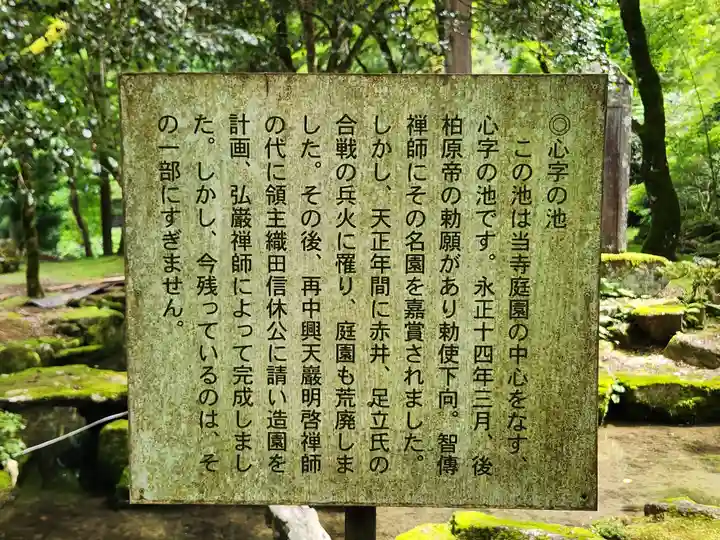 ◎心字の池
この池は当寺庭園の中心をなす、
心字の池です。永正十四年三月、後
柏原帝の勅願があり勅使下向。智傳
禅師にその名園を嘉賞されました。
しかし、天正年間に赤井、足立氏の
合戦の兵火に罹り、庭園も荒廃しま
した。その後、再中興天巖明啓禅師
の代に領主織田信休公に請い造園を
計画、弘巌禅師によって完成しまし
た。しかし、今残っているのは、そ
の一部にすぎません。